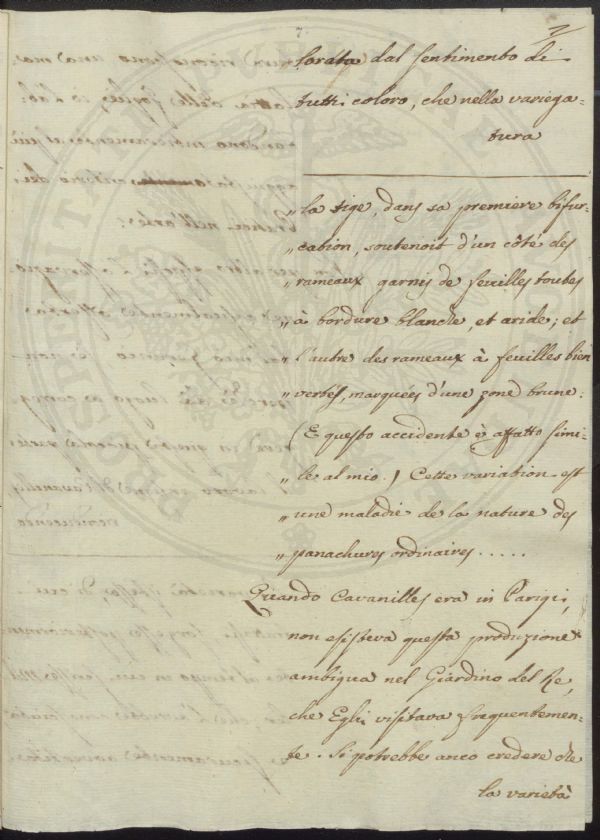 7.
lorata dal sentimento di
tutti coloro, che nella variega-
tura
„ la tige, dans sa premiere bifur-
„ cation, soutenoit d'un côté des
„ rameaux garnis de feuilles toutes
„ à bordure blanche, et aride; et
„ l'autre des rameaux à feuilles bien
„ vertes, marquées d'une zone brune.
(E questo accidente è affatto simi-
„ le al mio.) Cette variation est
„ une maladie de la nature des
„ panachures ordinaires.....
Quando Cavanilles era in Parigi,
non esisteva questa produzione
ambigua nel Giardino del Re,
che Egli visitava frequentemen-
te. Si potrebbe anco credere che
la varietà